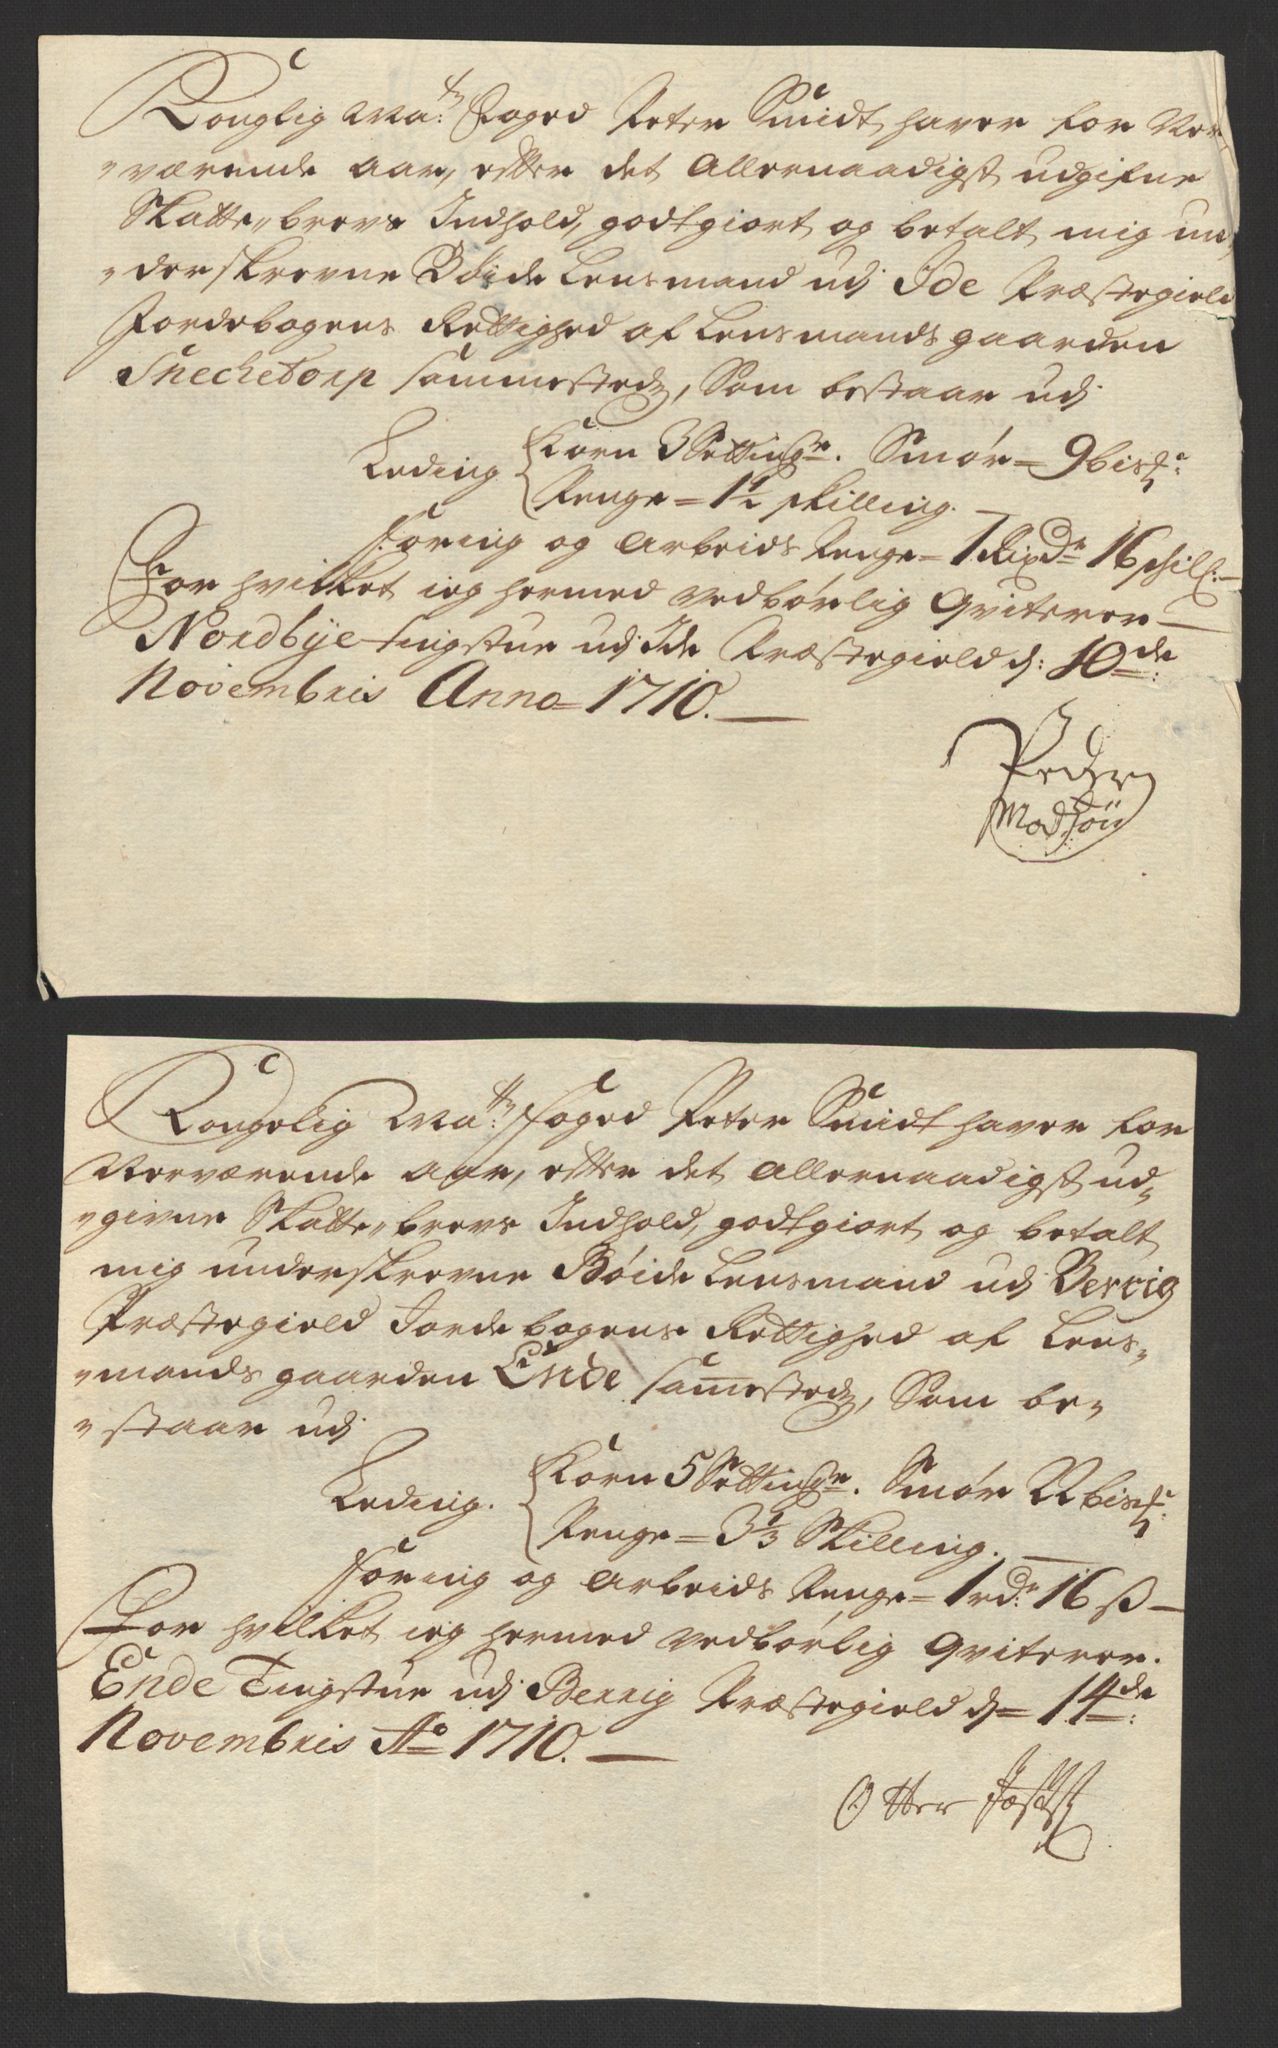 Konglig Ma:tz Foged Peter Smidt haver for Nær-
"værende Aar, efter det Allernaadigst udgifne
Skatte"brevs Indhold, godtgiort og betalt mig un-
"derskrevne Bøide Lensmand udj Ide Præstegield
Jordebogens Rettighed af Lensmandsgaarden
Snechetorp sammestedz, Som bestaar udj
Leding { Korn 3 Setting:r. Smør = 9 bis:
Penge = 1½ skilling.
Foring og Arbeids Penge = 1 Rixd:r 16 schil:
For hvilket ieg hermed vedbørlig Qviterer
Nordbye tingstue udj Ide Præstegield d: 10de:
Novembris Anno = 1710.
Peder
Madsøn
Kongelig Ma:tz Foged Peter Smidt haver for
Nerværende Aar, efter det Allernaadigst ud-
"givne Skatte"brevs Indhold, godtgiort og betalt
mig underskrevne Bøide Lensmand udj Berrig
Præstegield Jordebogens Rettighed af Lens-
"mandsgaarden Ende samestedz, Som be-
"staar udj
Leding. { Korn 5 Setting:r. Smør 22 bis:
Penge = 3⅓ Skilling.
Foring og Arbeids Penge = 1 rd:r 16 ß
For hvilket ieg hermed vedbørlig Qviterer.
Ende Tingstue udj Berrig Præstegield d = 14de:
Novembris Ao 1710.
Otter